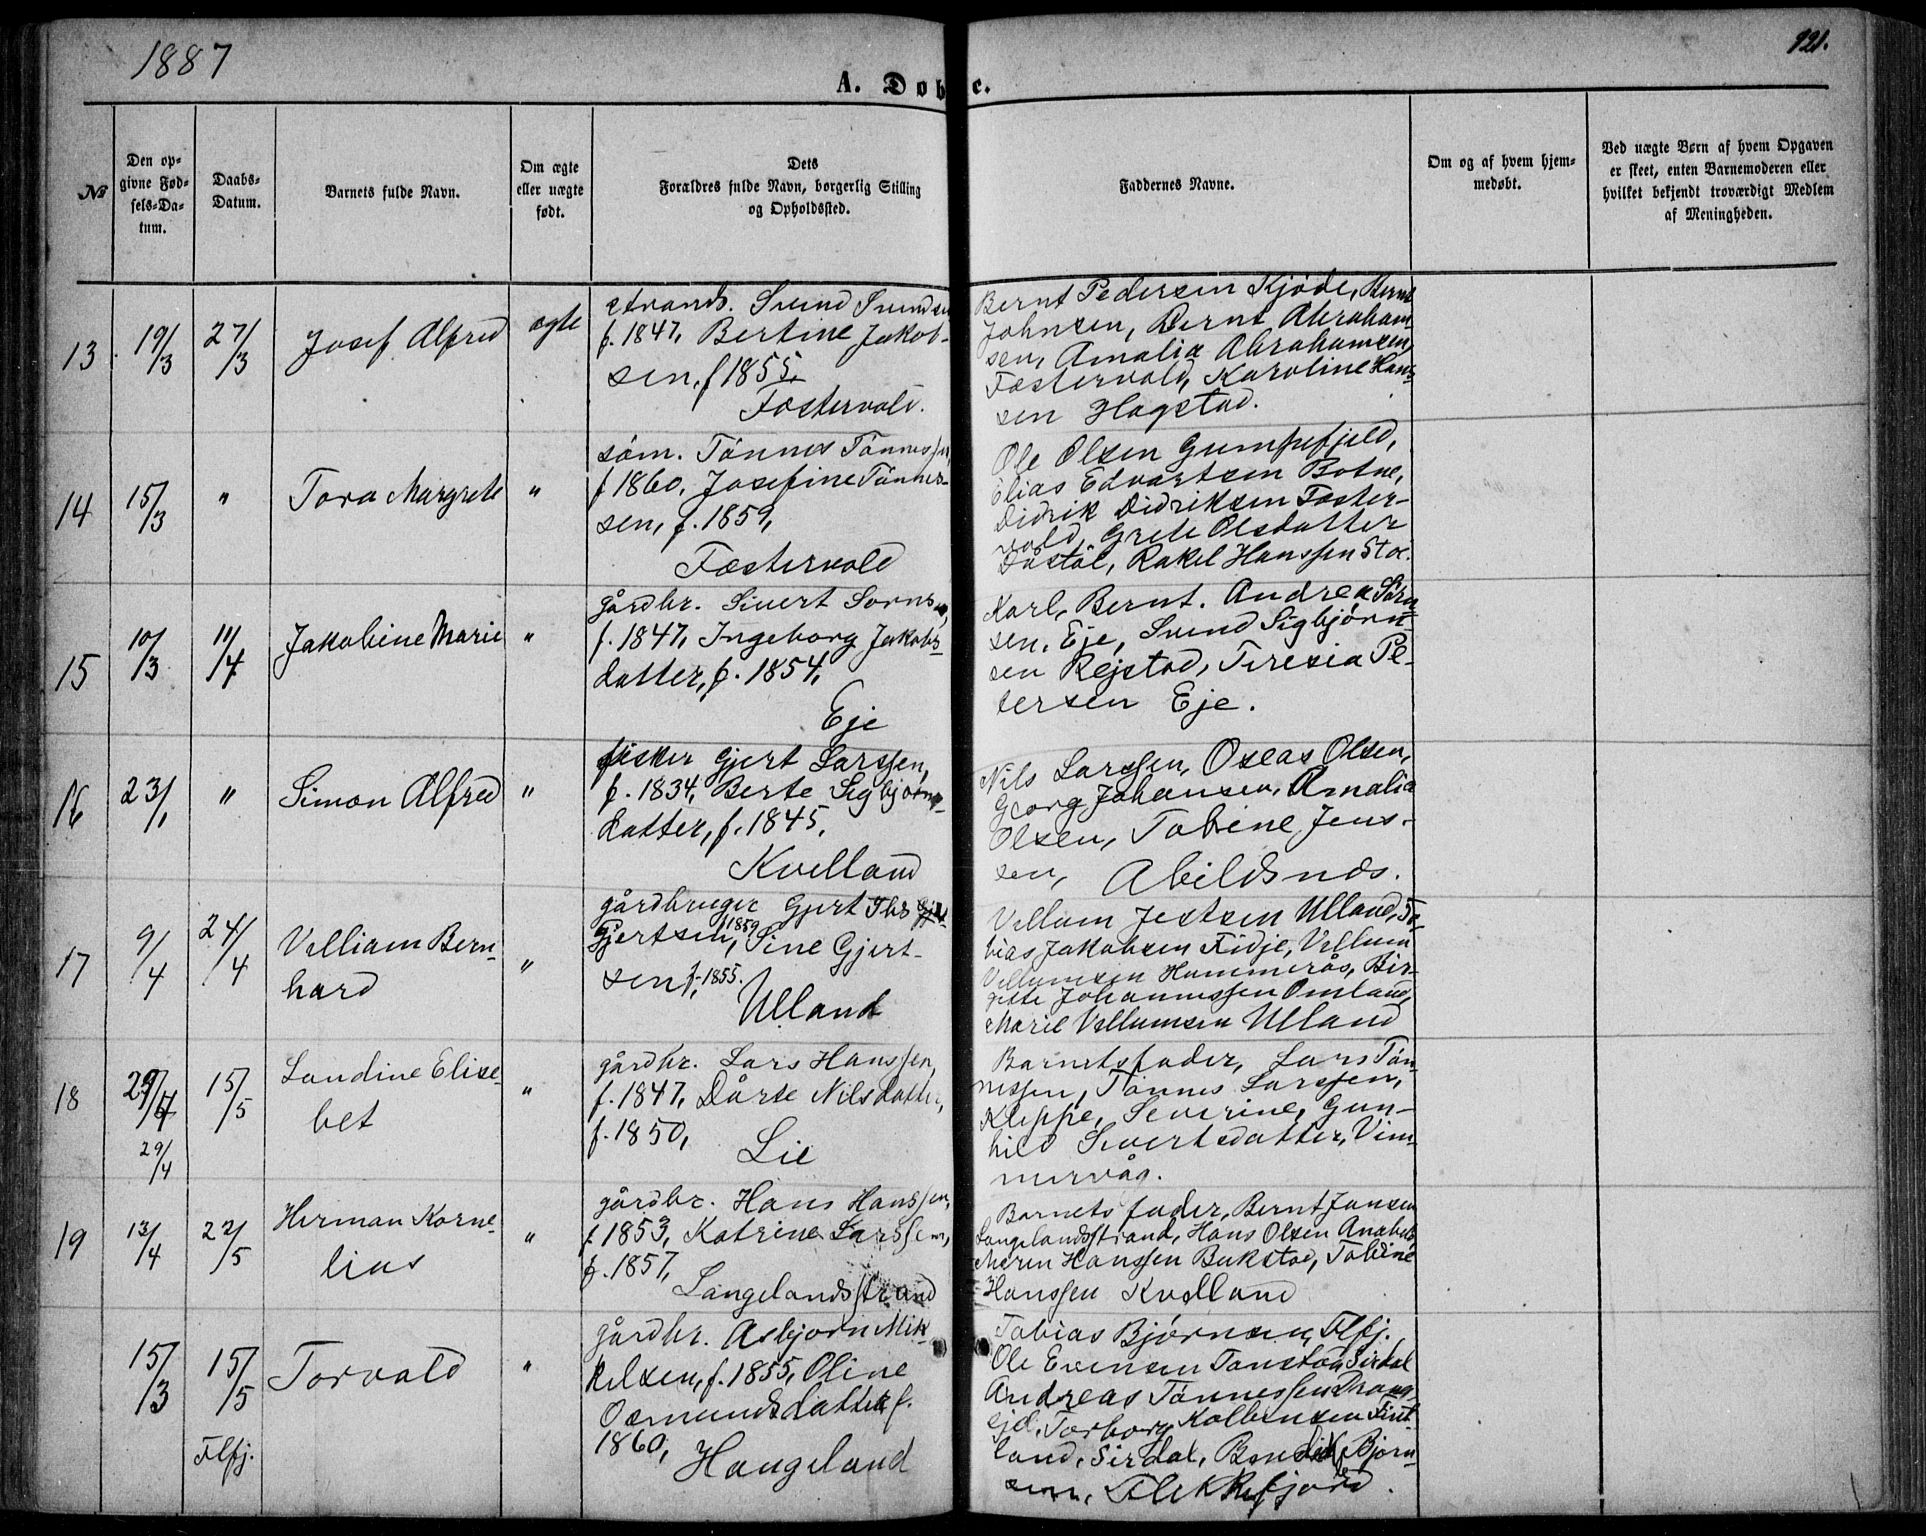 1887
121.
A. Døbte.
№
Den op-
givne Fød-
sels-Da-
tum.
Daabs-
Datum.
Barnets fulde Navn.
Om ægte
eller uægte
født.
Dets
Forældres fulde Navn, borgerlig Stilling
og Opholdssted.
Faddernes Navne.
Om og af hvem hjem-
medøbt.
Ved uægte Børn af hvem Opgaven
er skeet, enten Barnemoderen eller
hvilket bekjendt troværdigt Medlem
af Meningheden.
13 19/3 27/3 Josef Alfred ægte
strands. Svend Svendsen
f. 1847, Bertine Jakob-
sen, f 1855,
Fostervold.
Bernt Pedersen Kjøde, Bernt
Johnsen, Bernt Abraham-
sen, Amalia Abrahamsen,
Fostervold, Karoline Hans-
sen Hagstad.
14 15/3 " Tora Margrete "
søm. Tønnes Tønnessen,
f 1860, Josefine Tønnes-
sen, f. 1859,
Fæstervold
Ole Olsen Gumpefjeld,
Elias Edvartsen Botne,
Didrik Didriksen Foster-
vold, Grete Olsdatter
Dåstøl, Rakel Hanssen Stoe.
15 10/3 11/4 Jakobine Marie "
gårdbr. Sivert Sørensen,
f. 1847, Ingeborg Jakobs-
datter, f. 1854,
Eje
Karl, Bernt. Andrea Sørn-
sen, Eje, Svend Sigbjørn-
sen Rejstad, Teresia Pe-
tersen Eje.
16 23/1 " Simon Alfred "
fisker Gjert Larssen,
f. 1834, Berte Sigbjørns-
datter, f. 1845,
Kvelland
Nils Larssen, Oseas Olsen,
Georg Johansen, Amalia
Olsen, Tobine Jens-
sen, Abildsnds.
17 9/4 24/4 Villiam Bern-
hard "
gårdbruger Gjert Ths
Gjertsen, 1859, Sine Gjert-
sen f. 1855.
Ulland
Vellum Jestsen Ulland, To-
bias Jakobsen Fidje, Vellum
Vellumsen Hammerås, Bir-
gitte Johannessen Omland,
Marie Vellumsen Ulland
18 29/4 15/5 Landine Elise-
bet "
29/4
gårdbr. Lars Hanssen,
f. 1847, Dårte Nilsdatter,
f. 1850,
Lie
Barnetsfader, Lars Tøn-
nessen, Tønnes Larssen,
Kleppe, Severine, Gun-
hild Sivertsdatter, Vim-
mervåg.
19 13/4 22/5 Herman Korne-
lius "
gårdbr. Hans Hanssen,
f. 1853, Katrine Larssen,
f. 1857,
Langelandsstrand
Barnets fader, Bernt Jansen
Langelandsstrand, Hans Olsen Anabels
Maren Hanssen Bukstad, Tobine
Hanssen Kvelland
15/3 15/5 Torvald "
Flfj.
gårdbr. Asbjørn Mik-
kelsen, f. 1855, Oline
Osmundsdatter f.
1860,
Haugeland
Tobias Bjørnsen, Flfj.,
Ole Evensen Tonstad, Sirdal
Andreas Tønnessen Drang-
ejd, Torborg Kolbensen Fint-
land, Sirdal, Bendik Bjørn-
sen, Flekkefjord.